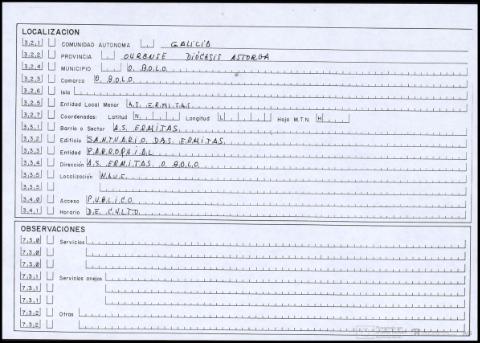 LOCALIZACION
3.2.1 COMUNIDAD AUTONOMA GALICIA
3.2.2 PROVINCIA OURENSE DIÓCESIS ASTORGA
3.2.4 MUNICIPIO O BOLO
3.2.3 Comarca O BOLO
3.2.6 Isla
3.2.5 Entidad Local Menor AS ERMITAS
3.2.7 Coordenadas: Latitud N Longitud Hoja M.T.N. H
3.3.1 Barrio o Sector AS ERMITAS
3.3.2 Edificio SANTUARIO DAS ERMITAS
3.3.3 Entidad PARROQUIAL
3.3.4 Dirección AS ERMITAS O BOLO
3.3.5 Localización NAVE
3.3.5
3.4.0 Acceso PUBLICO
3.4.1 Horario DE CULTO
OBSERVACIONES
7.3.0 Servicios
7.3.0
7.3.0
7.3.1 Servicios anejos
7.3.1
7.3.1
7.3.2 Otros
7.3.2